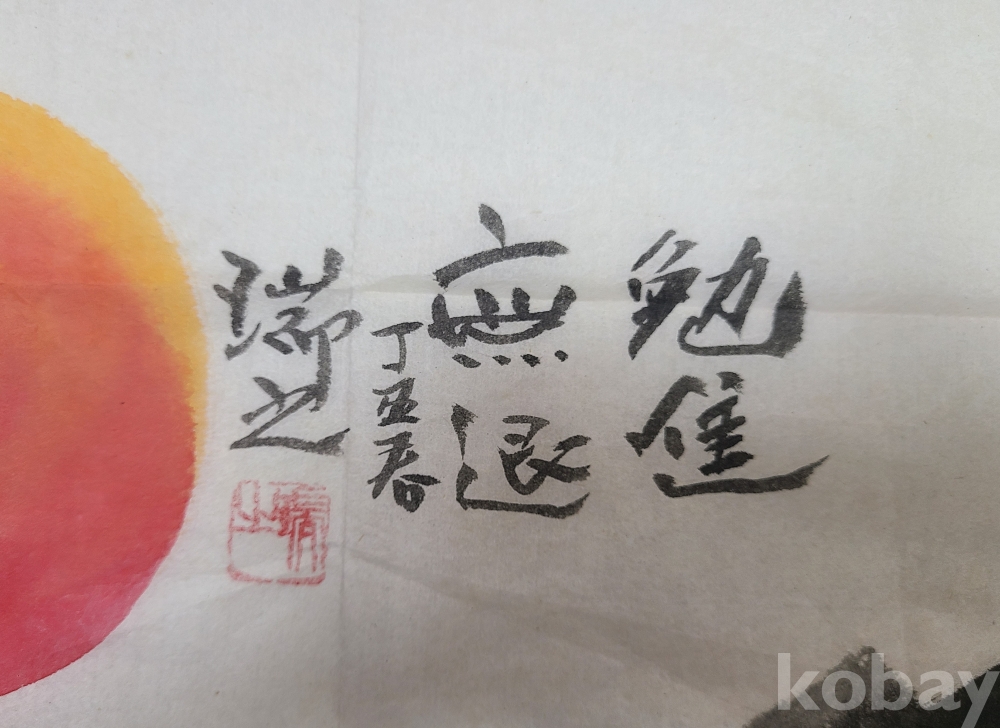 勉進
無退
丁丑春
瑞之
瑞之
kobay